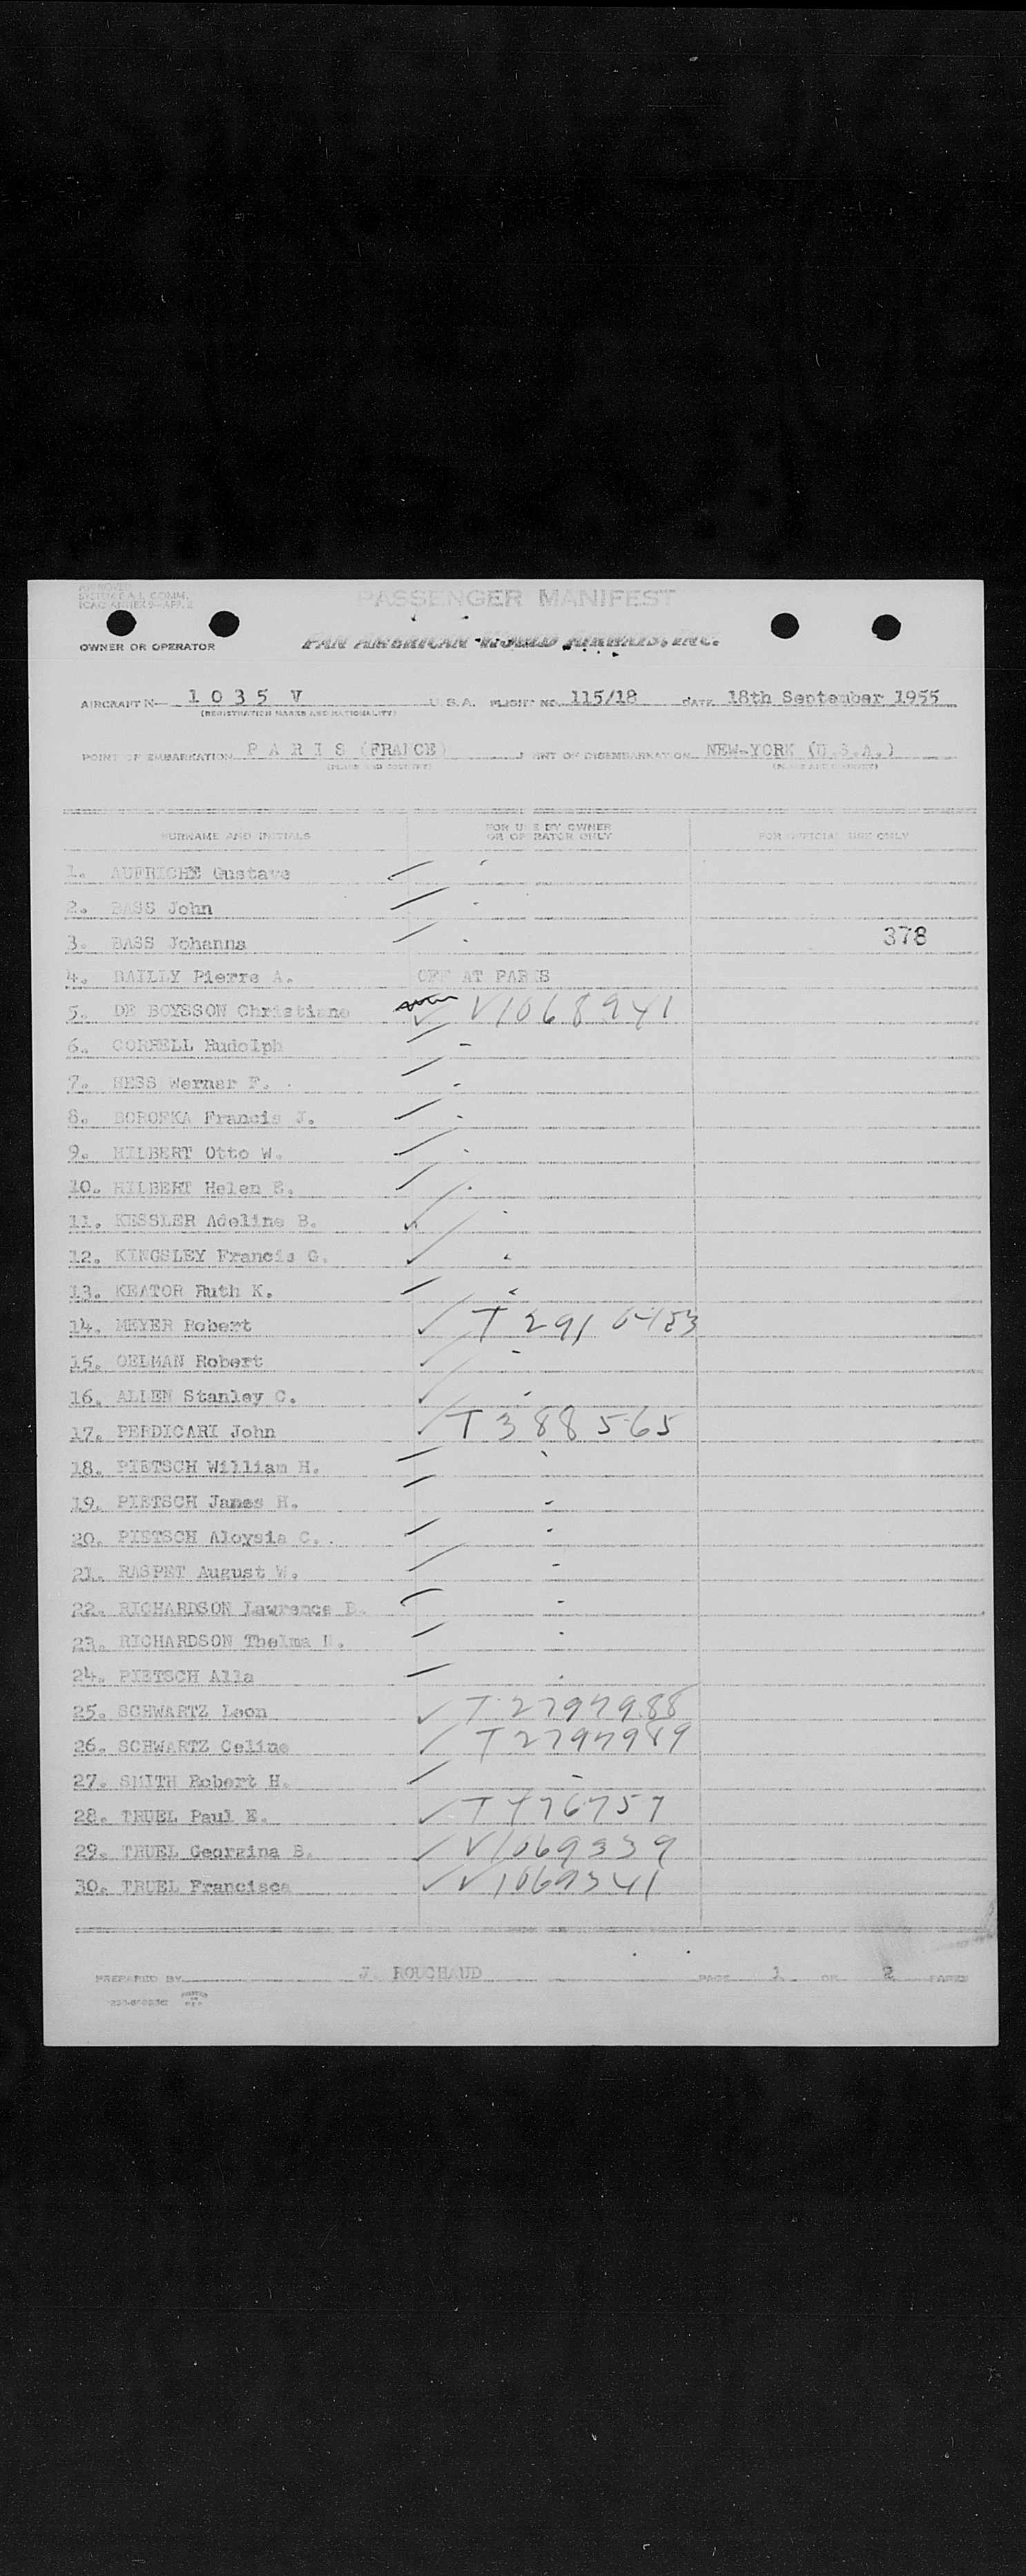 APPROVED
SYSTEM F.A.L. COMM.
ICAO ANNEX 9-APP. 2
PASSENGER MANIFEST
OWNER OR OPERATOR PAN AMERICAN WORLD AIRWAYS, INC.
AIRCRAFT N- 1 0 3 5 V U.S.A. FLIGHT NO. 115/18 DATE 18th September 1955
(REGISTRATION MARKS AND NATIONALITY)
POINT OF EMBARKATION P A R I S (FRANCE) POINT OF DISEMBARKATION NEW-YORK (U.S.A.)
(PLACE AND COUNTRY) (PLACE AND COUNTRY)
SURNAME AND INITIALS FOR USE BY OWNER OR OPERATOR ONLY FOR OFFICIAL USE ONLY
1. AUFRICHE Gustave
2. BASS John
3. BASS Johanna 378
4. BAILLY Pierre A. OFF AT PARIS
5. DE BOYSSON Christiane V1068941
6. CORRELL Rudolph
7. HESS Werner F.
8. BOROFKA Francis J.
9. HILBERT Otto W.
10. HILBERT Helen E.
11. KESSLER Adeline B.
12. KINGSLEY Francis G.
13. KEATOR Ruth K.
14. MEYER Robert T 291
15. OELMAN Robert
16. ALLEN Stanley C.
17. PERDICARI John T 388565
18. PIETSCH William H.
19. PIETSCH James H.
20. PIETSCH Aloysia C.
21. RASPET August W.
22. RICHARDSON Lawrence B.
23. RICHARDSON Thelma
24. PIETSCH Alla
25. SCHWARTZ Leon T 2797988
26. SCHWARTZ Celine T 2797989
27. SMITH Robert H.
28. TRUEL Paul E. T 476757
29. TRUEL Georgina B. V1069339
30. TRUEL Francisca V 1069341
PREPARED BY J. ROUCHAUD PAGE 1 OF 2 PAGES